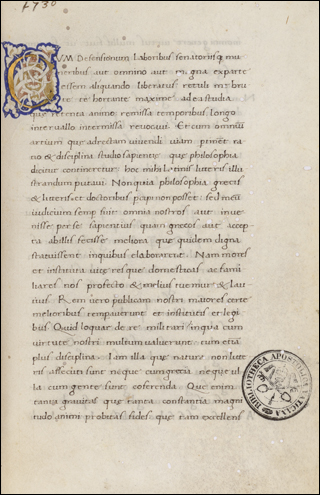 1730
1
CUM Defensionum laboribus senatoriisq; mu
neribus aut omnino aut magna exparte
essem aliquando liberatus retuli me brute
te hortante maxime ad ea studia
que retenta animo remissa temporibus longo
intervallo intermissa revocavi. Et cum omniū
artium que ad rectam vivendi viam ptineret ra
tio & disciplina studio sapientie que philosophia
dicitur contineretur hoc mihi latinis litteris illu
strandum putavi. Non quia philosophia grecis
& litteris et doctoribus pcipi non posset sed meū
iudicium semp fuit omnia nostros aut inve
nisse per se sapientius quam grecos aut accep
ta ab illis fecisse meliora que quidem digna
statuissent inquibus elaborarent. Nam mores
et instituta vite resque domesticas ac fami
liares nos profecto & melius tuemur & lau
tius. Rem vero publicam nostri maiores certe
melioribus temperaverunt et institutis et legi
bus. Quid loquar de re militari inqua cum
virtute nostri multum valuerunt tum etiā
plus disciplina. Iam illa que natura non litte
ris assecuti sunt neque cum grecia neque ul
la cum gente sunt conferenda. Que enim
tanta gravitas que tanta constantia magni
tudo animi probitas fides que tam excellens
BIBLIOTHECA APOSTOLICA VATICANA